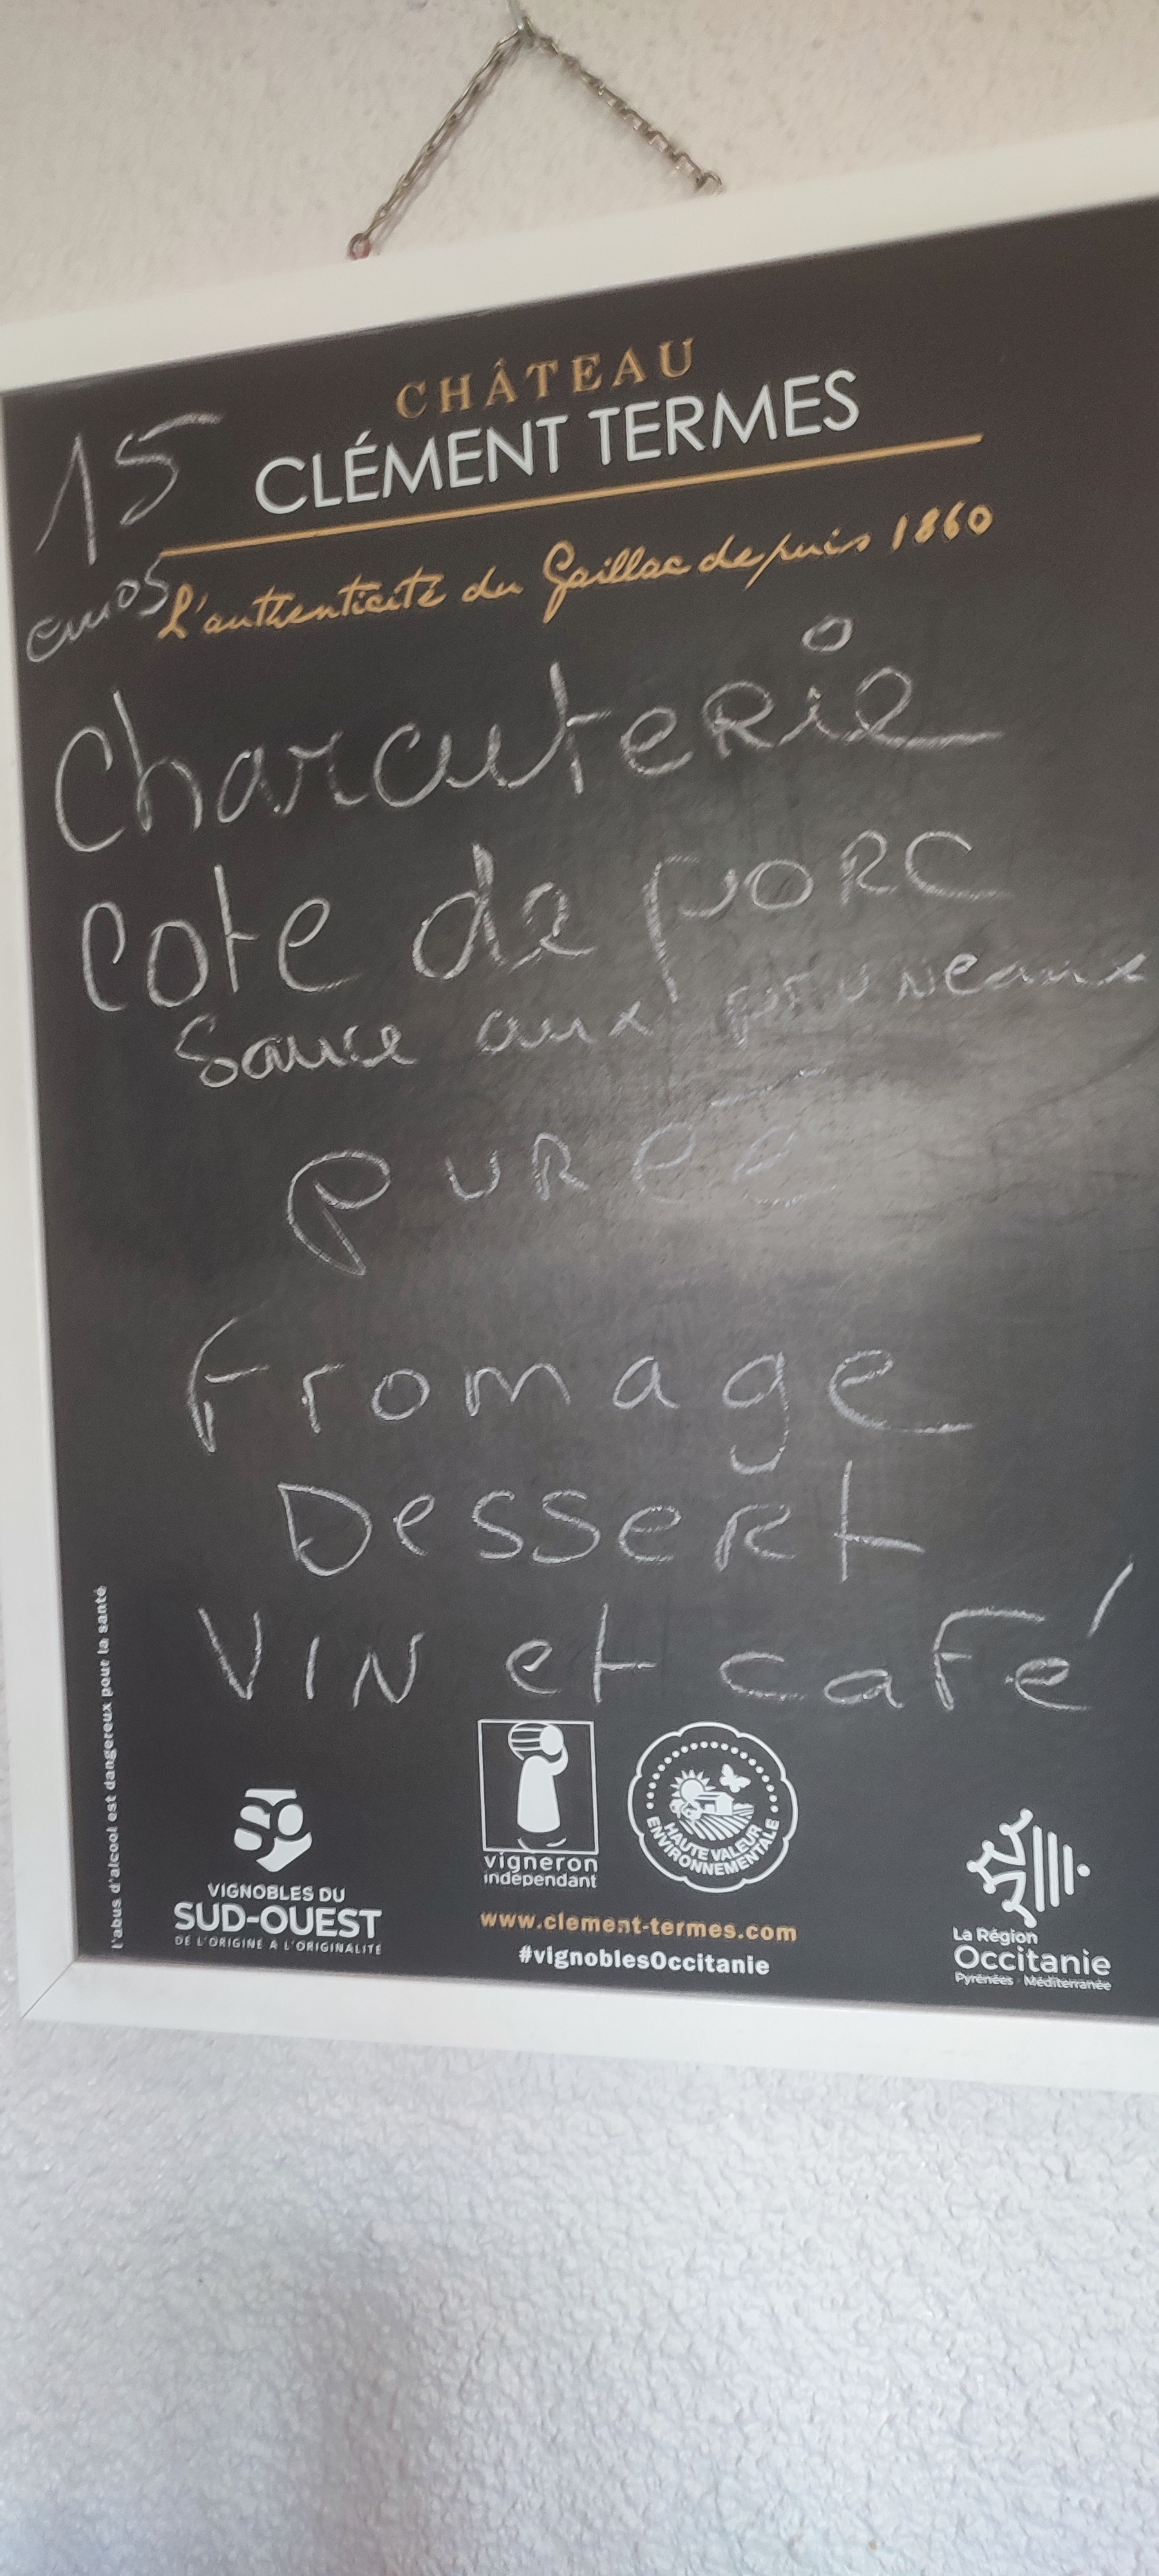 CHÂTEAU
CLÉMENT TERMES
15
euros
L'authenticité du Gaillac depuis 1860
Charcuterie
Cote de porc
Sauce aux pruneaux
purée
Fromage
Dessert
VIN et café
l'abus d'alcool est dangereux pour la santé
VIGNOBLES DU
SUD-OUEST
DE L'ORIGINE A L'ORIGINALITÉ
vigneron
indépendant
HAUTE VALEUR
ENVIRONNEMENTALE
www.clement-termes.com
#vignoblesOccitanie
La Région
Occitanie
Pyrénées - Méditerranée